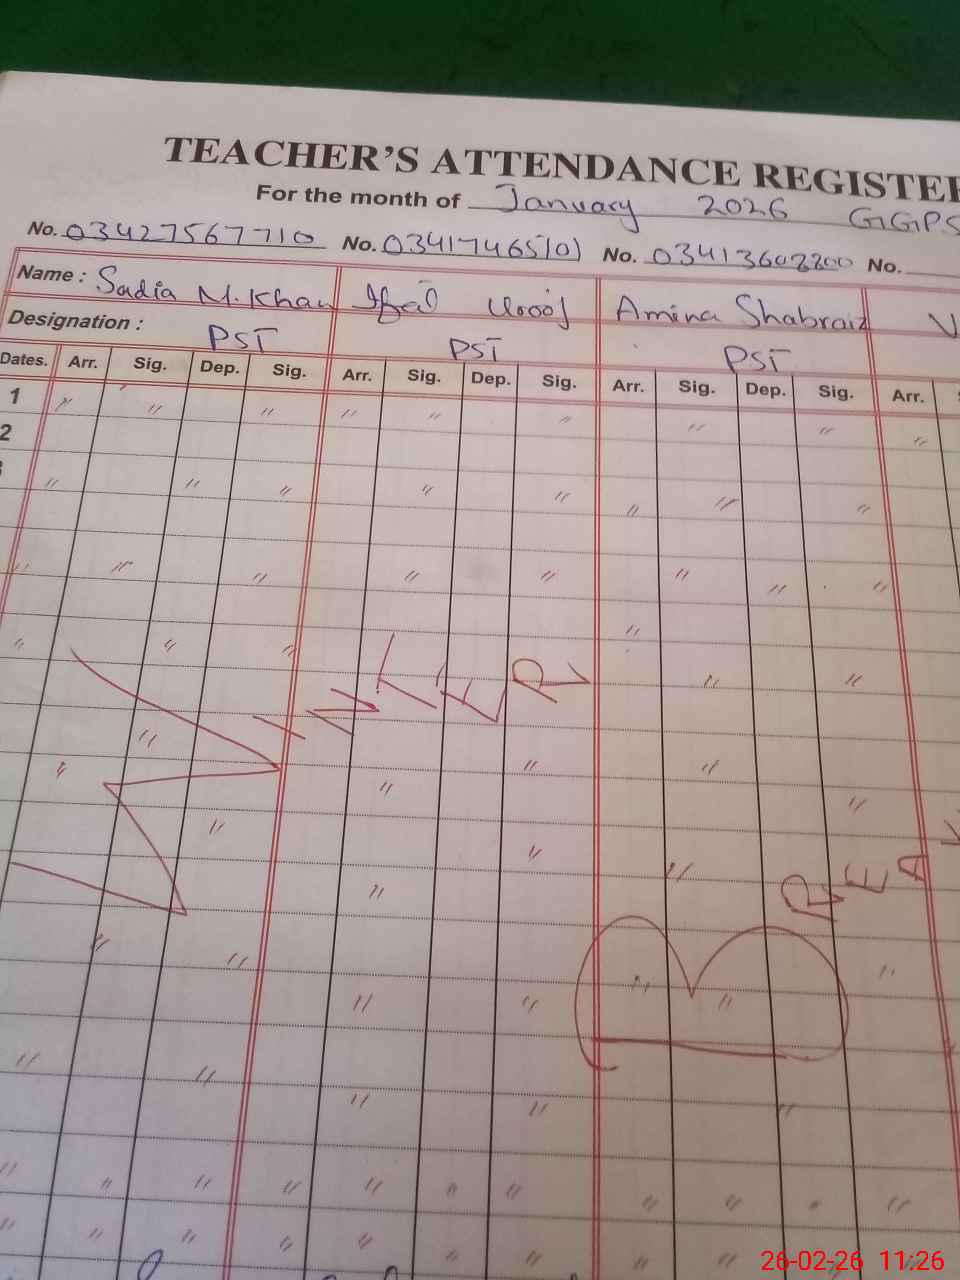 TEACHER'S ATTENDANCE REGISTER
For the month of January 2026 GGPS
No. 03427567710 No. 03417465101 No. 03413608800 No.
Name : Sadia M.Khan Urooj Amina Shabraiz
Designation : PST PST PST
Dates. Arr. Sig. Dep. Sig. Arr. Sig. Dep. Sig. Arr. Sig. Dep. Sig. Arr.
1 " " " " " " " "
2 "
" " " " " " " "
" " " " " " " "
" " " "
WINTER
" " " " " " " "
BREAK
" " " " " " " "
26-02-26 11:26